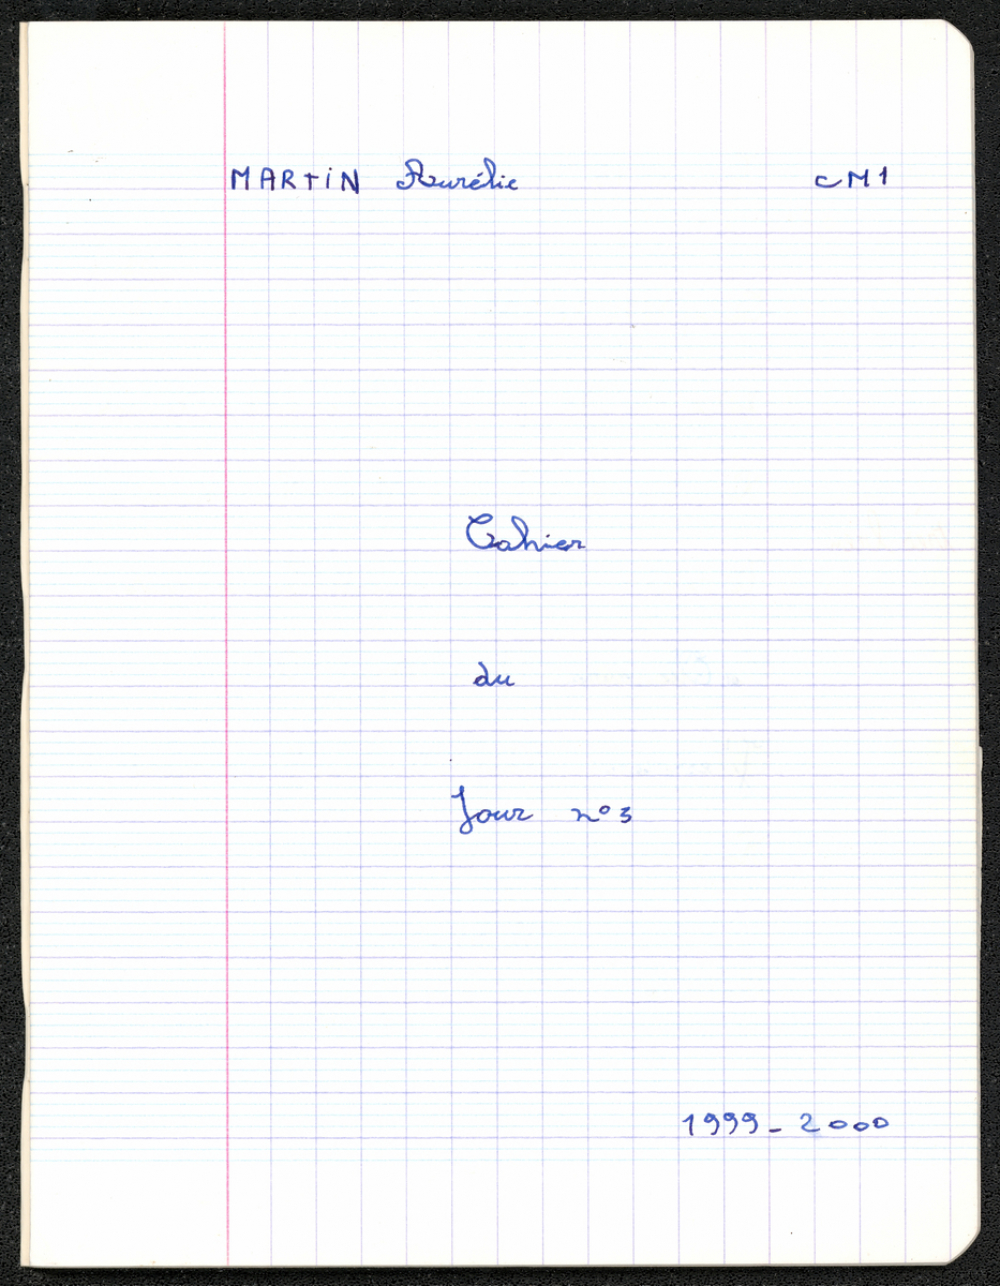 MARTIN Aurélie CM1
Cahier
du
Jour n°3
1999-2000